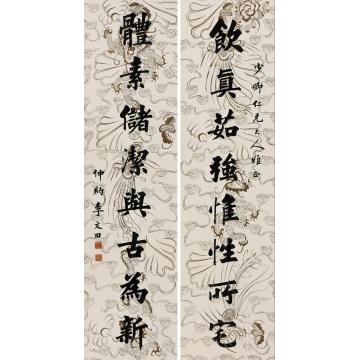 飲真茹強惟性所宅
少卿仁兄大人雅正
體素儲潔與古為新
仲約李文田